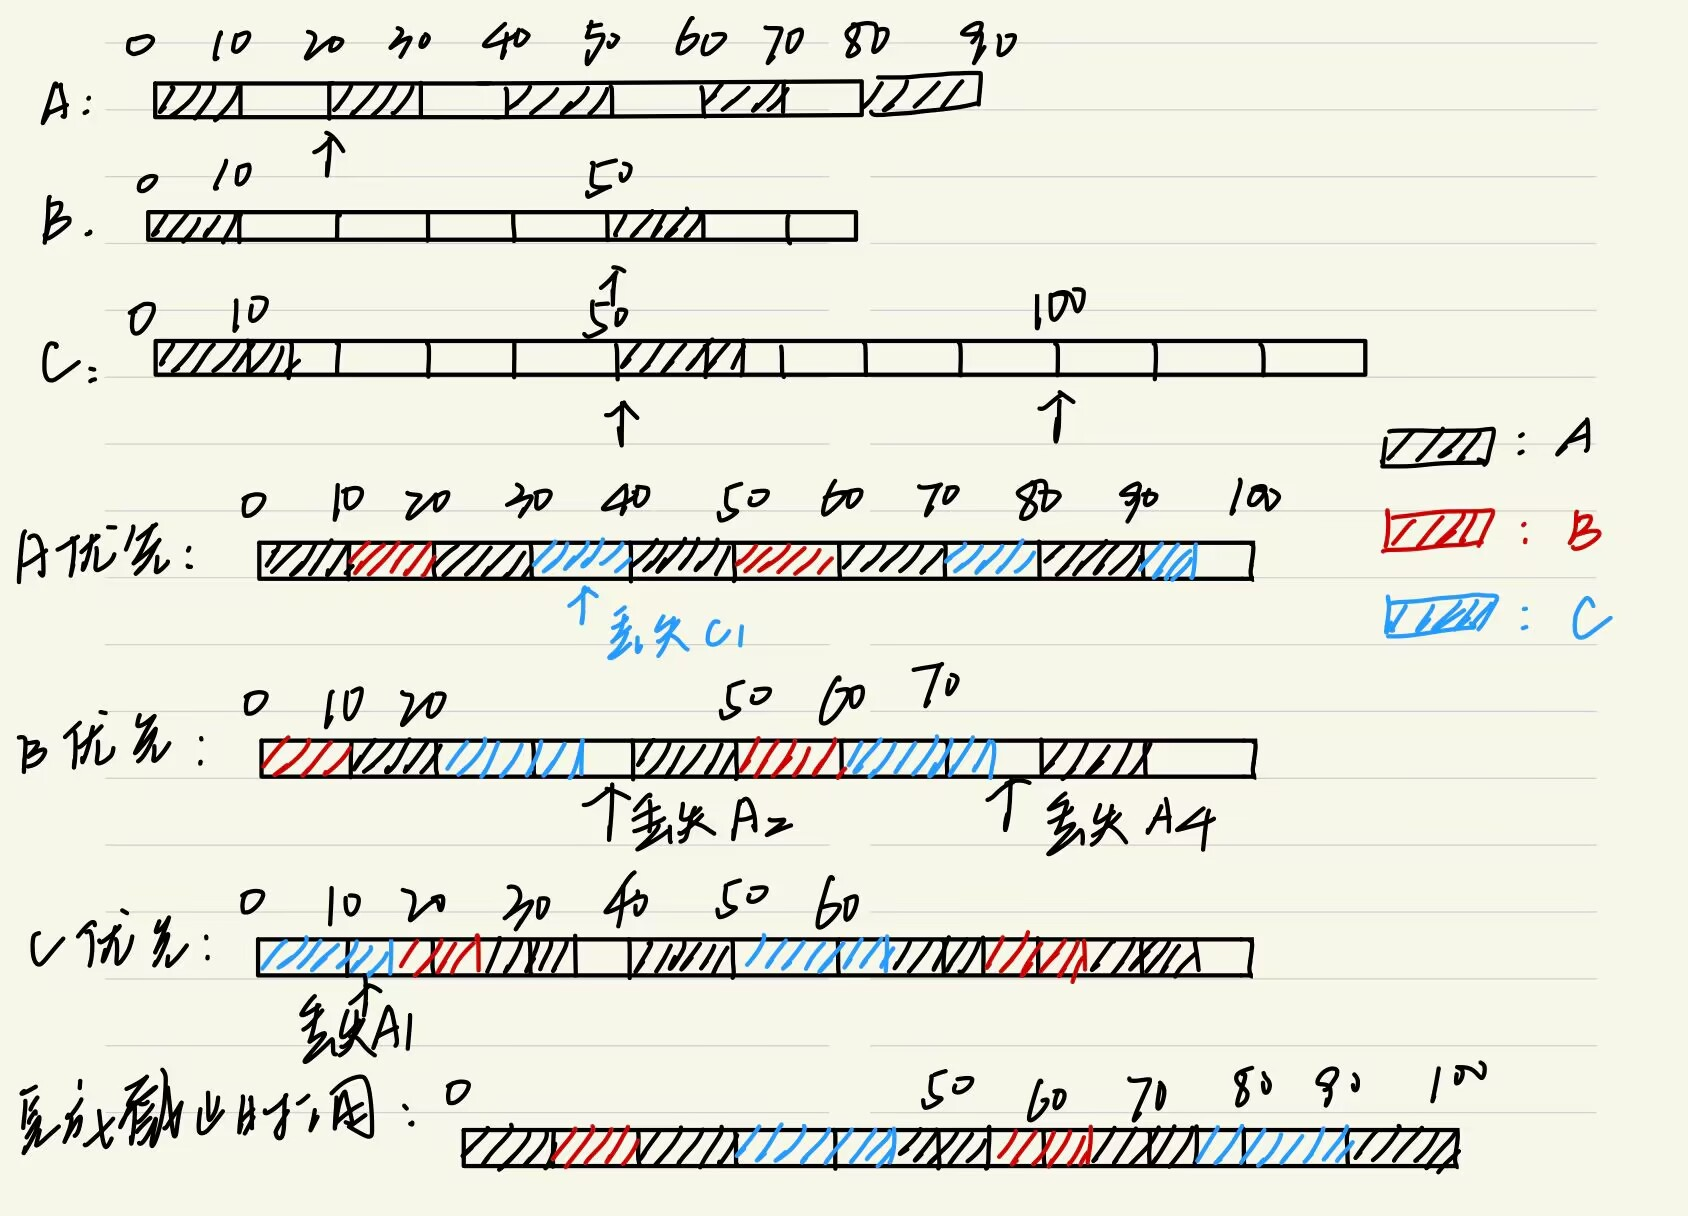 0 10 20 30 40 50 60 70 80 90
A:
0 10 50
B.
0 10 50 100
C:
: A
0 10 20 30 40 50 60 70 80 90 100
A优先:
: B
丢失C1
: C
0 10 20 50 60 70
B优先:
丢失A2 丢失A4
0 10 20 30 40 50 60
C优先:
丢失A1
完成截止时间: 0 50 60 70 80 90 100